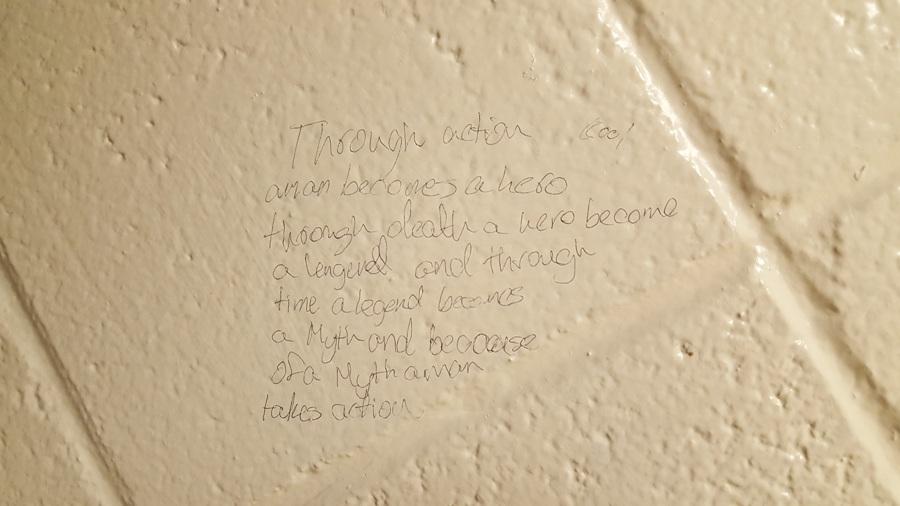 Through action cool
a man becomes a hero
through death a hero become
a lengend and through
time a legend becomes
a Myth and because
of a Myth a man
takes action